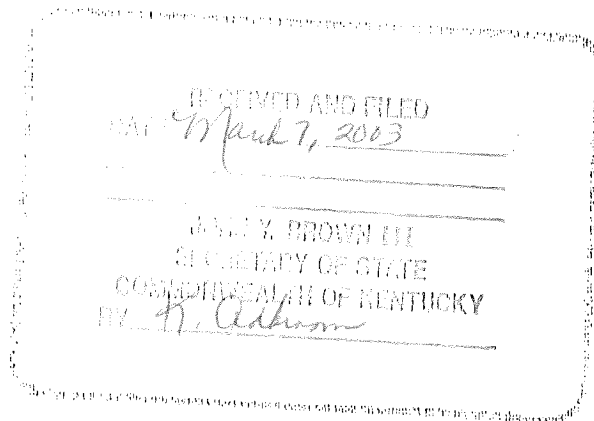 RECEIVED AND FILED
DATE March 7, 2003
JOHN Y. BROWN III
SECRETARY OF STATE
COMMONWEALTH OF KENTUCKY
BY K.